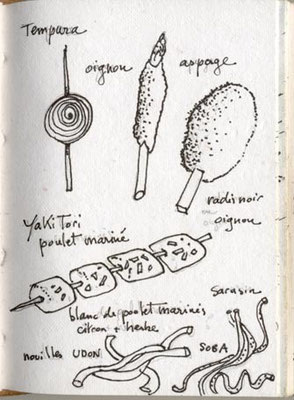 Tempura
oignon
asperge
radis noir
oignon
Yaki Tori
poulet mariné
blanc de poulet marinés
citron + herbe
sarasin
nouilles UDON
SOBA